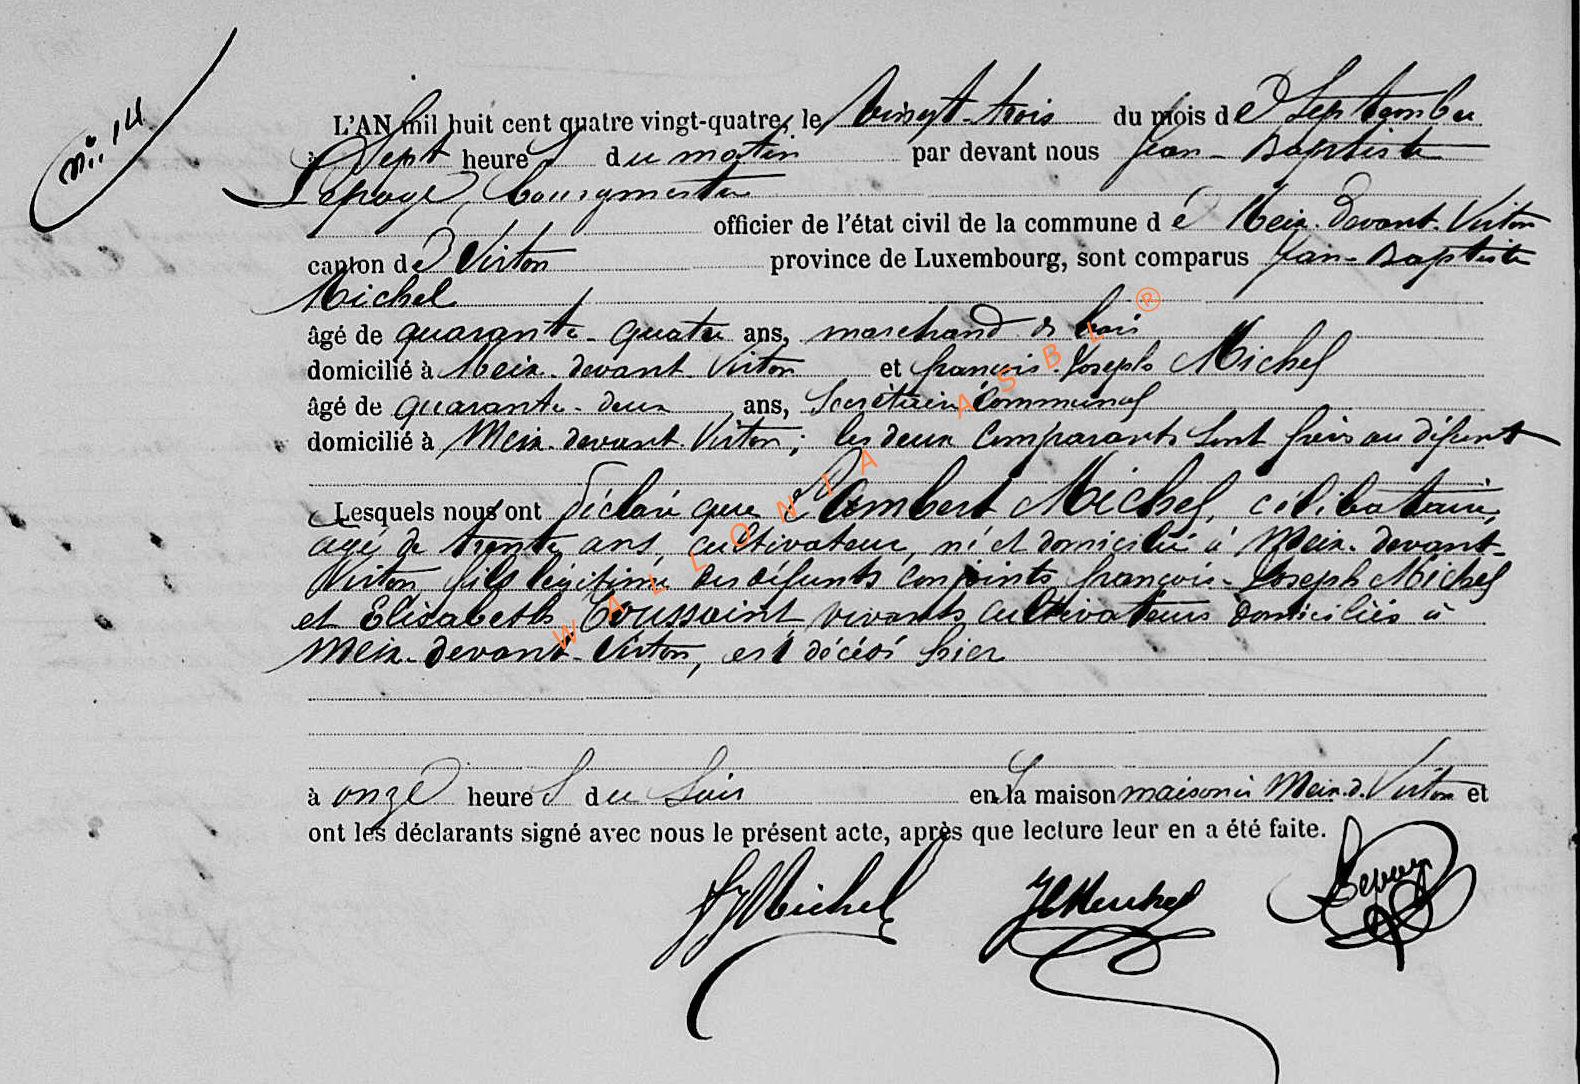 N° 14
L'AN mil huit cent quatre vingt-quatre, le Vingt-trois du mois de Septembre
à Sept heures du matin par devant nous Jean-Baptiste
Lepage, bourgmestre
officier de l'état civil de la commune de Meix-devant-Virton
canton de Virton province de Luxembourg, sont comparus Jean-Baptiste
Michel
âgé de quarante-quatre ans, marchand de bois
domicilié à Meix-devant-Virton et françois-Joseph Michel
âgé de quarante-deux ans, Secrétaire Communal
domicilié à Meix-devant-Virton; les deux Comparants sont frères au défunt
Lesquels nous ont déclaré que Lambert Michel, célibataire,
agé de trente ans, cultivateur, né et domicilié à Meix-devant-
Virton, fils légitime des défunts conjoints françois-Joseph Michel
et Elisabeth Toussaint vivants cultivateurs domiciliés à
Meix-devant-Virton, est décédé hier
à onze heures du Soir en la maison maison à Meix-d-Virton et
ont les déclarants signé avec nous le présent acte, après que lecture leur en a été faite.
FJMichel JBMichel Lepage
WALLONIA ASBL ®